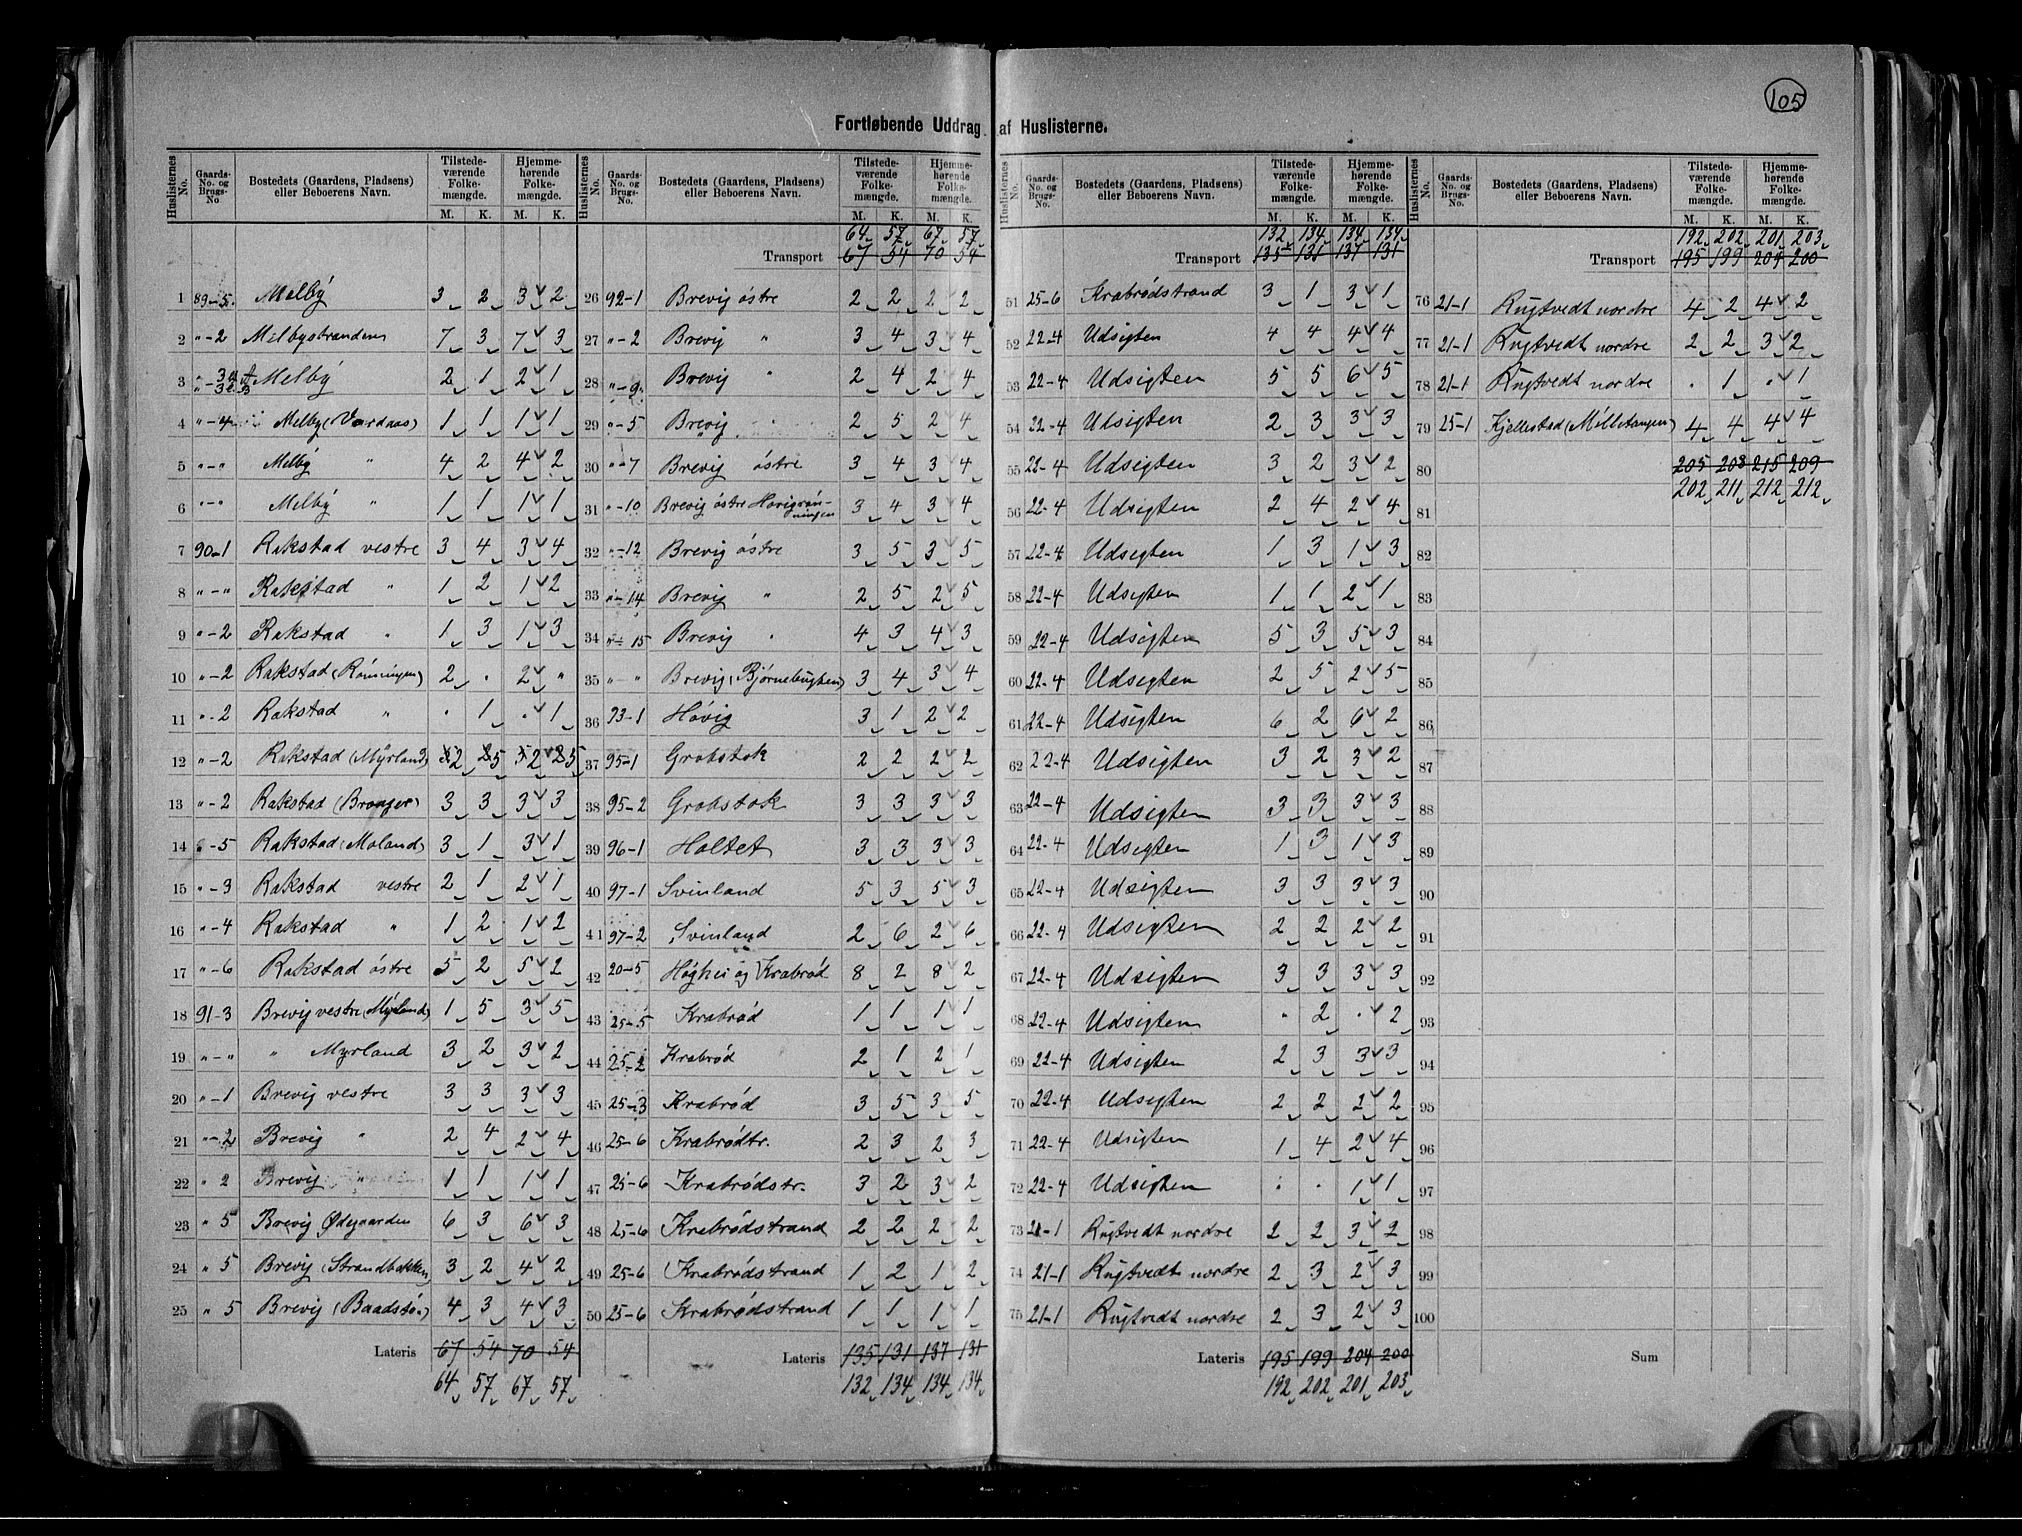 105
Fortløbende Uddrag af Huslisterne.
Huslisternes No. | Gaards-No. og Brugs-No. | Bostedets (Gaardens, Pladsens) eller Beboerens Navn. | Tilstedeværende Folkemængde. M. K. | Hjemmehørende Folkemængde. M. K.
1 89-5 Melby 3 2 3 2
2 "-2 Melbystranden 7 3 7 3
3 Melby 2 1 2 1
4 "-4 Melby (Vardaas) 1 1 1 1
5 "-" Melby " 4 2 4 2
6 "-" Melby " 1 1 1 1
7 90-1 Rakstad vestre 3 4 3 4
8 "-" Rakstad " 1 2 1 2
9 "-2 Rakstad " 1 3 1 3
10 "-2 Rakstad (Rønningen) 2 . 2 "
11 "-2 Rakstad " . 1 . 1
12 "-2 Rakstad (Myrland) 2 5 2 5
13 "-2 Rakstad (Branger) 3 3 3 3
14 "-5 Rakstad (Moland) 3 1 3 1
15 "-3 Rakstad vestre 2 1 2 1
16 "-4 Rakstad " 1 2 1 2
17 "-6 Rakstad østre 5 2 5 2
18 91-3 Brevig vestre (Myrland) 1 5 3 5
19 "-" " Myrland 3 2 3 2
20 "-1 Brevig vestre 3 3 3 3
21 "-2 Brevig " 2 4 2 4
22 " 2 Brevig " 1 1 1 1
23 " 5 Brevig Ødegaarden 6 3 6 3
24 " 5 Brevig (Strandbakken) 3 2 4 2
25 " 5 Brevig (Baadstø) 4 3 4 3
Lateris 67 54 70 54
64 57 67 57
64 57 67 57
Transport 67 54 70 54
26 92-1 Brevig østre 2 2 2 2
27 "-2 Brevig " 3 4 3 4
28 "-9 Brevig " 2 4 2 4
29 "-5 Brevig " 2 5 2 4
30 "-7 Brevig østre 3 4 3 4
31 "-10 Brevig østre Høvigrønningen 3 4 3 4
32 "-12 Brevig østre 3 5 3 5
33 "-14 Brevig " 2 5 2 5
34 "-15 Brevig " 4 3 4 3
35 " " Brevig (Bjørnebugten) 3 4 3 4
36 93-1 Høvig 3 1 2 2
37 95-1 Grobstok 2 2 2 2
38 95-2 Grobstok 3 3 3 3
39 96-1 Holtet 3 3 3 3
40 97-1 Svinland 5 3 5 3
41 97-2 Svinland 2 6 2 6
42 20-5 Høghei og Krabrød 8 2 8 2
43 25-5 Krabrød 1 1 1 1
44 25-2 Krabrød 2 1 2 1
45 25-3 Krabrød 3 5 3 5
46 25-6 Krabrødtr. 2 3 2 3
47 25-6 Krabrødstr. 3 2 3 2
48 25-6 Krabrødstrand 2 2 2 2
49 25-6 Krabrødstrand 1 2 1 2
50 25-6 Krabrødstrand 1 1 1 1
Lateris 135 131 137 131
132 134 134 134
Huslisternes No. | Gaards-No. og Brugs-No. | Bostedets (Gaardens, Pladsens) eller Beboerens Navn. | Tilstedeværende Folkemængde. M. K. | Hjemmehørende Folkemængde. M. K.
132 134 134 134
Transport 135 131 137 131
51 25-6 Krabrødstrand 3 1 3 1
52 22-4 Udsigten 4 4 4 4
53 22-4 Udsigten 5 5 6 5
54 22-4 Udsigten 2 3 3 3
55 22-4 Udsigten 3 2 3 2
56 22-4 Udsigten 2 4 2 4
57 22-4 Udsigten 1 3 1 3
58 22-4 Udsigten 1 1 2 1
59 22-4 Udsigten 5 3 5 3
60 22-4 Udsigten 2 5 2 5
61 22-4 Udsigten 6 2 6 2
62 22-4 Udsigten 3 2 3 2
63 22-4 Udsigten 3 3 3 3
64 22-4 Udsigten 1 3 1 3
65 22-4 Udsigten 3 3 3 3
66 22-4 Udsigten 2 2 2 2
67 22-4 Udsigten 3 3 3 3
68 22-4 Udsigten . 2 . 2
69 22-4 Udsigten 2 3 3 3
70 22-4 Udsigten 2 2 2 2
71 22-4 Udsigten 1 4 2 4
72 22-4 Udsigten . . 1 1
73 21-1 Rugtvedt nordre 2 2 3 2
74 21-1 Rugtvedt nordre 2 3 2 3
75 21-1 Rugtvedt nordre 2 3 2 3
Lateris 195 199 204 200
192 202 201 203
192 202 201 203
Transport 195 199 204 200
76 21-1 Rugtvedt nordre 4 2 4 2
77 21-1 Rugtvedt nordre 2 2 3 2
78 21-1 Rugtvedt nordre . 1 . 1
79 25-1 Kjellestad (Mølletangen) 4 4 4 4
80 205 208 215 209
202 211 212 212
81
82
83
84
85
86
87
88
89
90
91
92
93
94
95
96
97
98
99
100
Sum